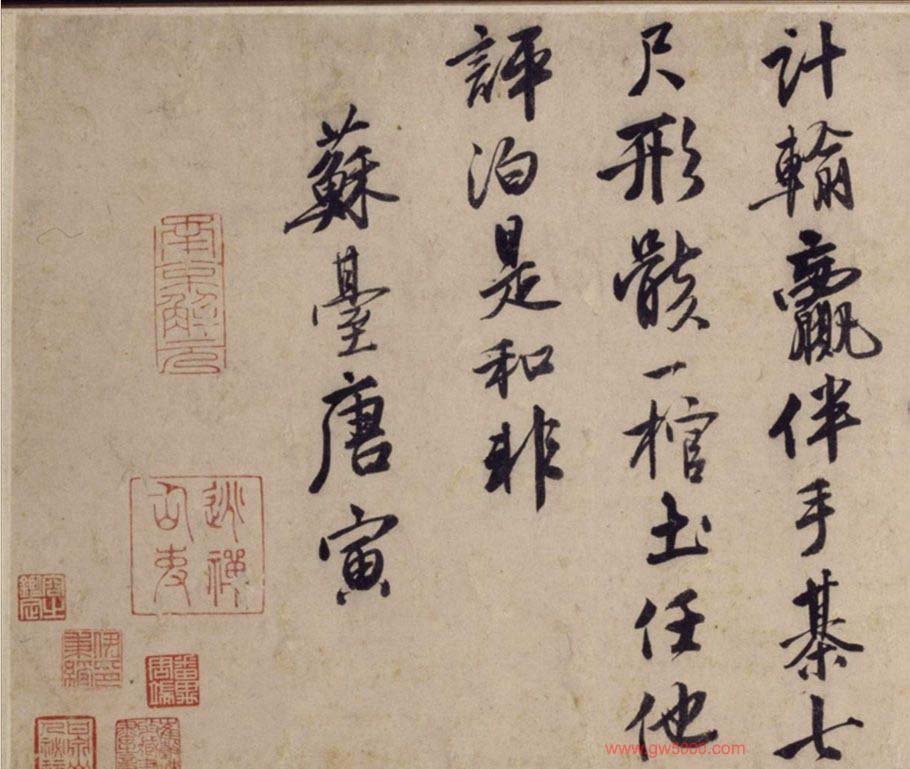 計輸贏伴手棊七
尺形骸一棺土任他
評泊是和非
蘇臺唐寅
南京解元
逃禪仙吏
www.gw5000.com